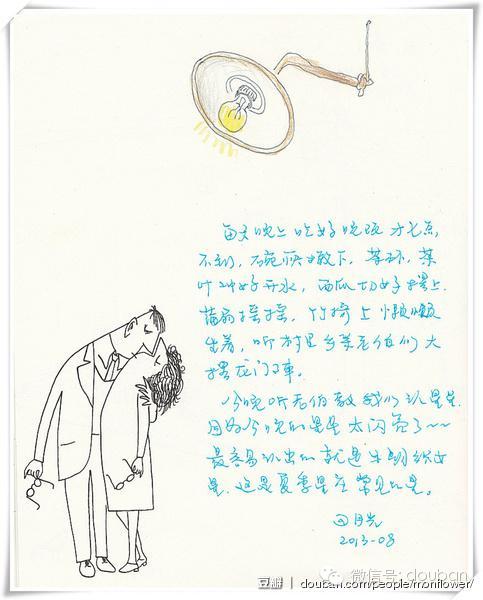 每天晚上吃好晚饭才七点
不到,碗筷一散下,茶杯,茶
叶冲好开水,西瓜切好摆上.
蒲扇摇摇,竹椅上懒懒
坐着,听村里乡亲老伯们大
摆龙门阵。
今晚听老伯教我们认星星.
因为今晚的星星太闪亮了~~
最容易认出的就是牛郎织女
星.这是夏季星空常见的星。
田月光
2013-08
微信号: douban
豆瓣 | douban.com/people/monflower/